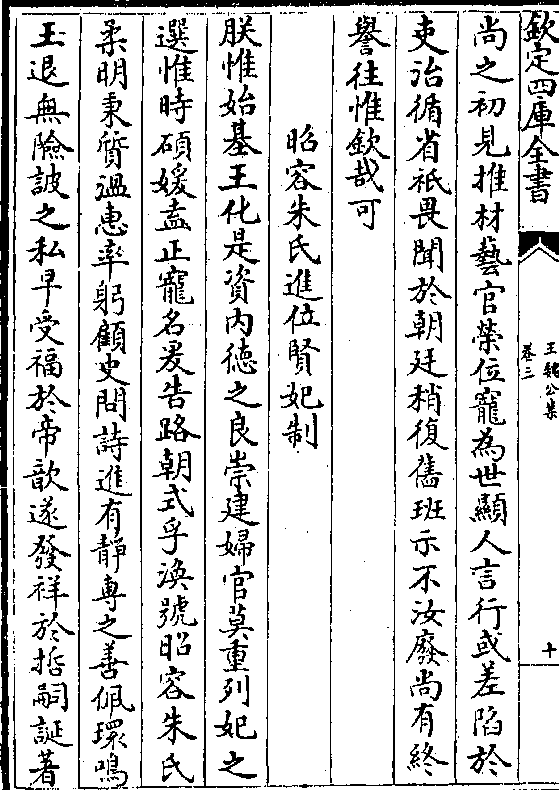 欽定四庫全書
王魏公集
卷三
十
尚之初見推材藝官榮位寵為世顯人言行或差陷於
吏治循省祇畏聞於朝廷稍復舊班示不汝廢尚有終
譽往惟欽哉可
昭容朱氏進位賢妃制
朕惟始基王化是資内德之良崇建婦官莫重列妃之
選惟時碩媛盍正寵名爰告路朝式孚渙號昭容朱氏
柔明秉質温惠率躬顧史問詩進有靜專之善佩環鳴
玉退無險詖之私早受福於帝歆遂發祥於哲嗣誕著